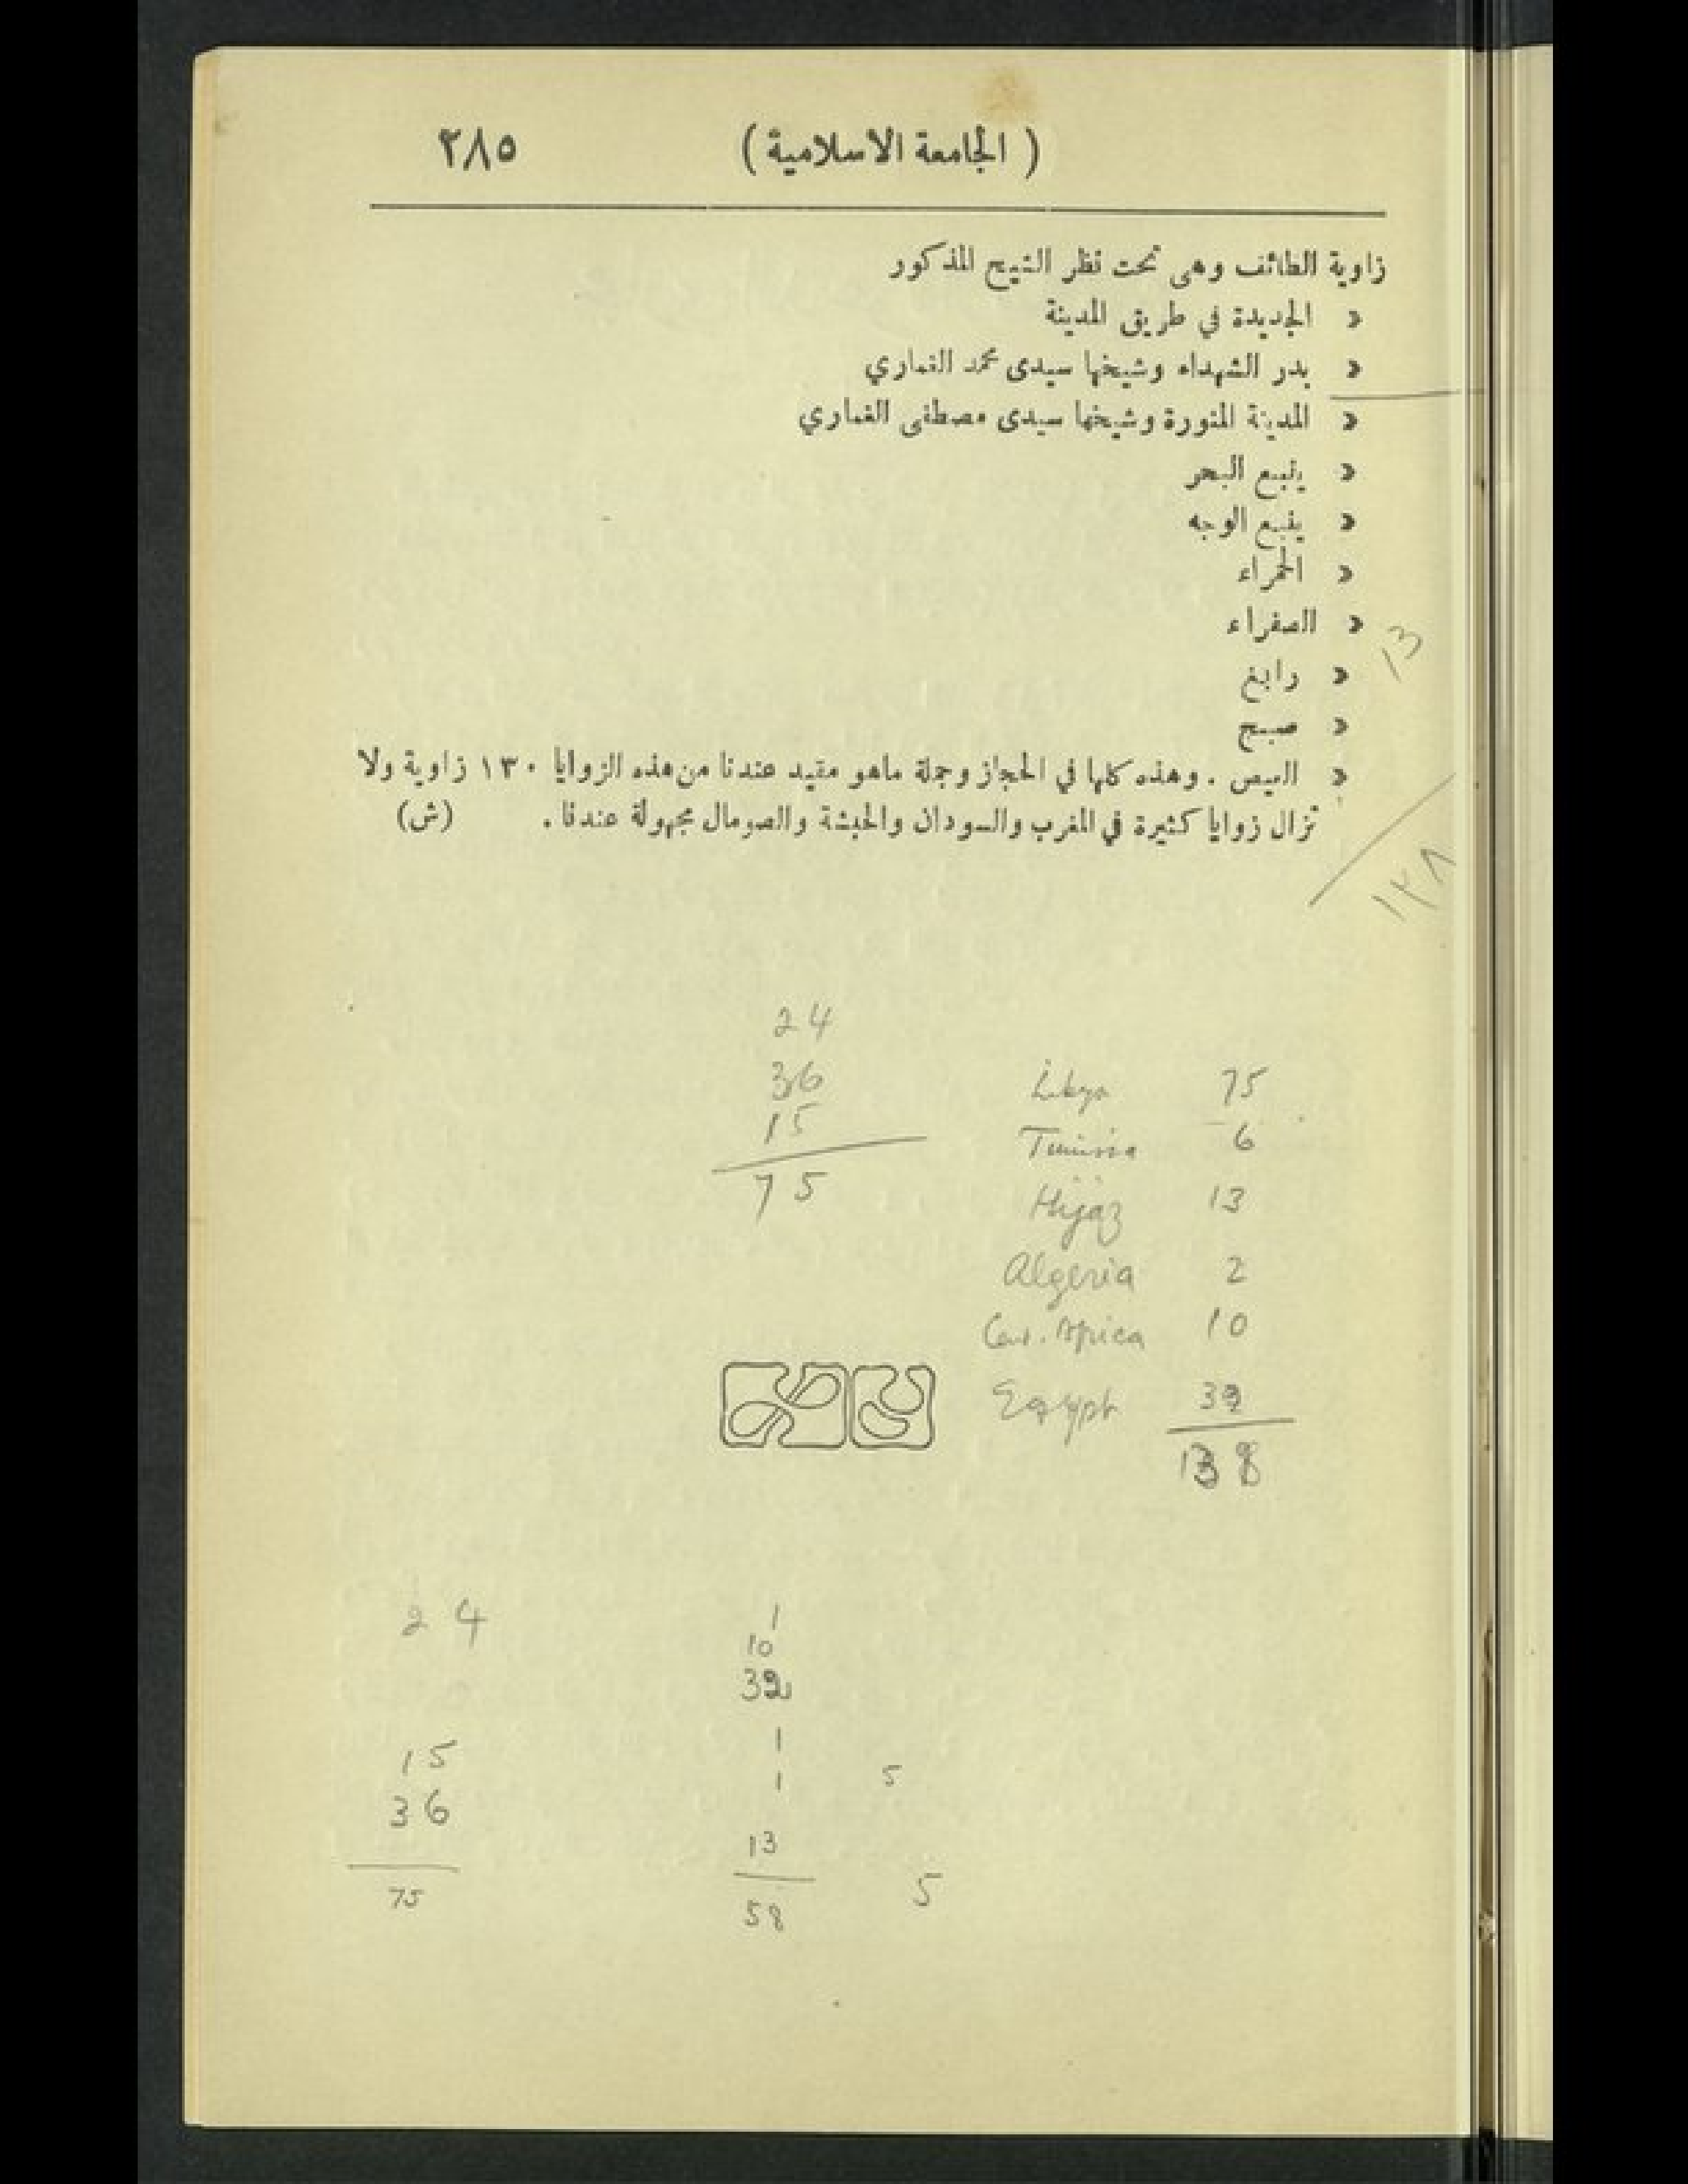 ( الجامعة الاسلامية ) ٢٨٥
زاوية الطائف وهى تحت نظر الشيخ المذكور
« الجديدة في طريق المدينة
« بدر الشهداء وشيخها سيدى محمد الغماري
« المدينة المنورة وشيخها سيدى مصطفى الغماري
« ينبع البحر
« ينبع الوجه
« الحمراء
« الصفراء
13
« رابغ
« صبح
« العيص . وهذه كلها في الحجاز وجملة ماهو مقيد عندنا من هذه الزوايا ١٣٠ زاوية ولا
تزال زوايا كثيرة في المغرب والسودان والحبشة والصومال مجهولة عندنا . (ش)
١٣٨
24
36
15
75
Libya 75
Tunisia 6
Hijaz 13
Algeria 2
Cen. Africa 10
Egypt 32
138
24
15
36
75
1
10
32
1
1 5
13
58 5